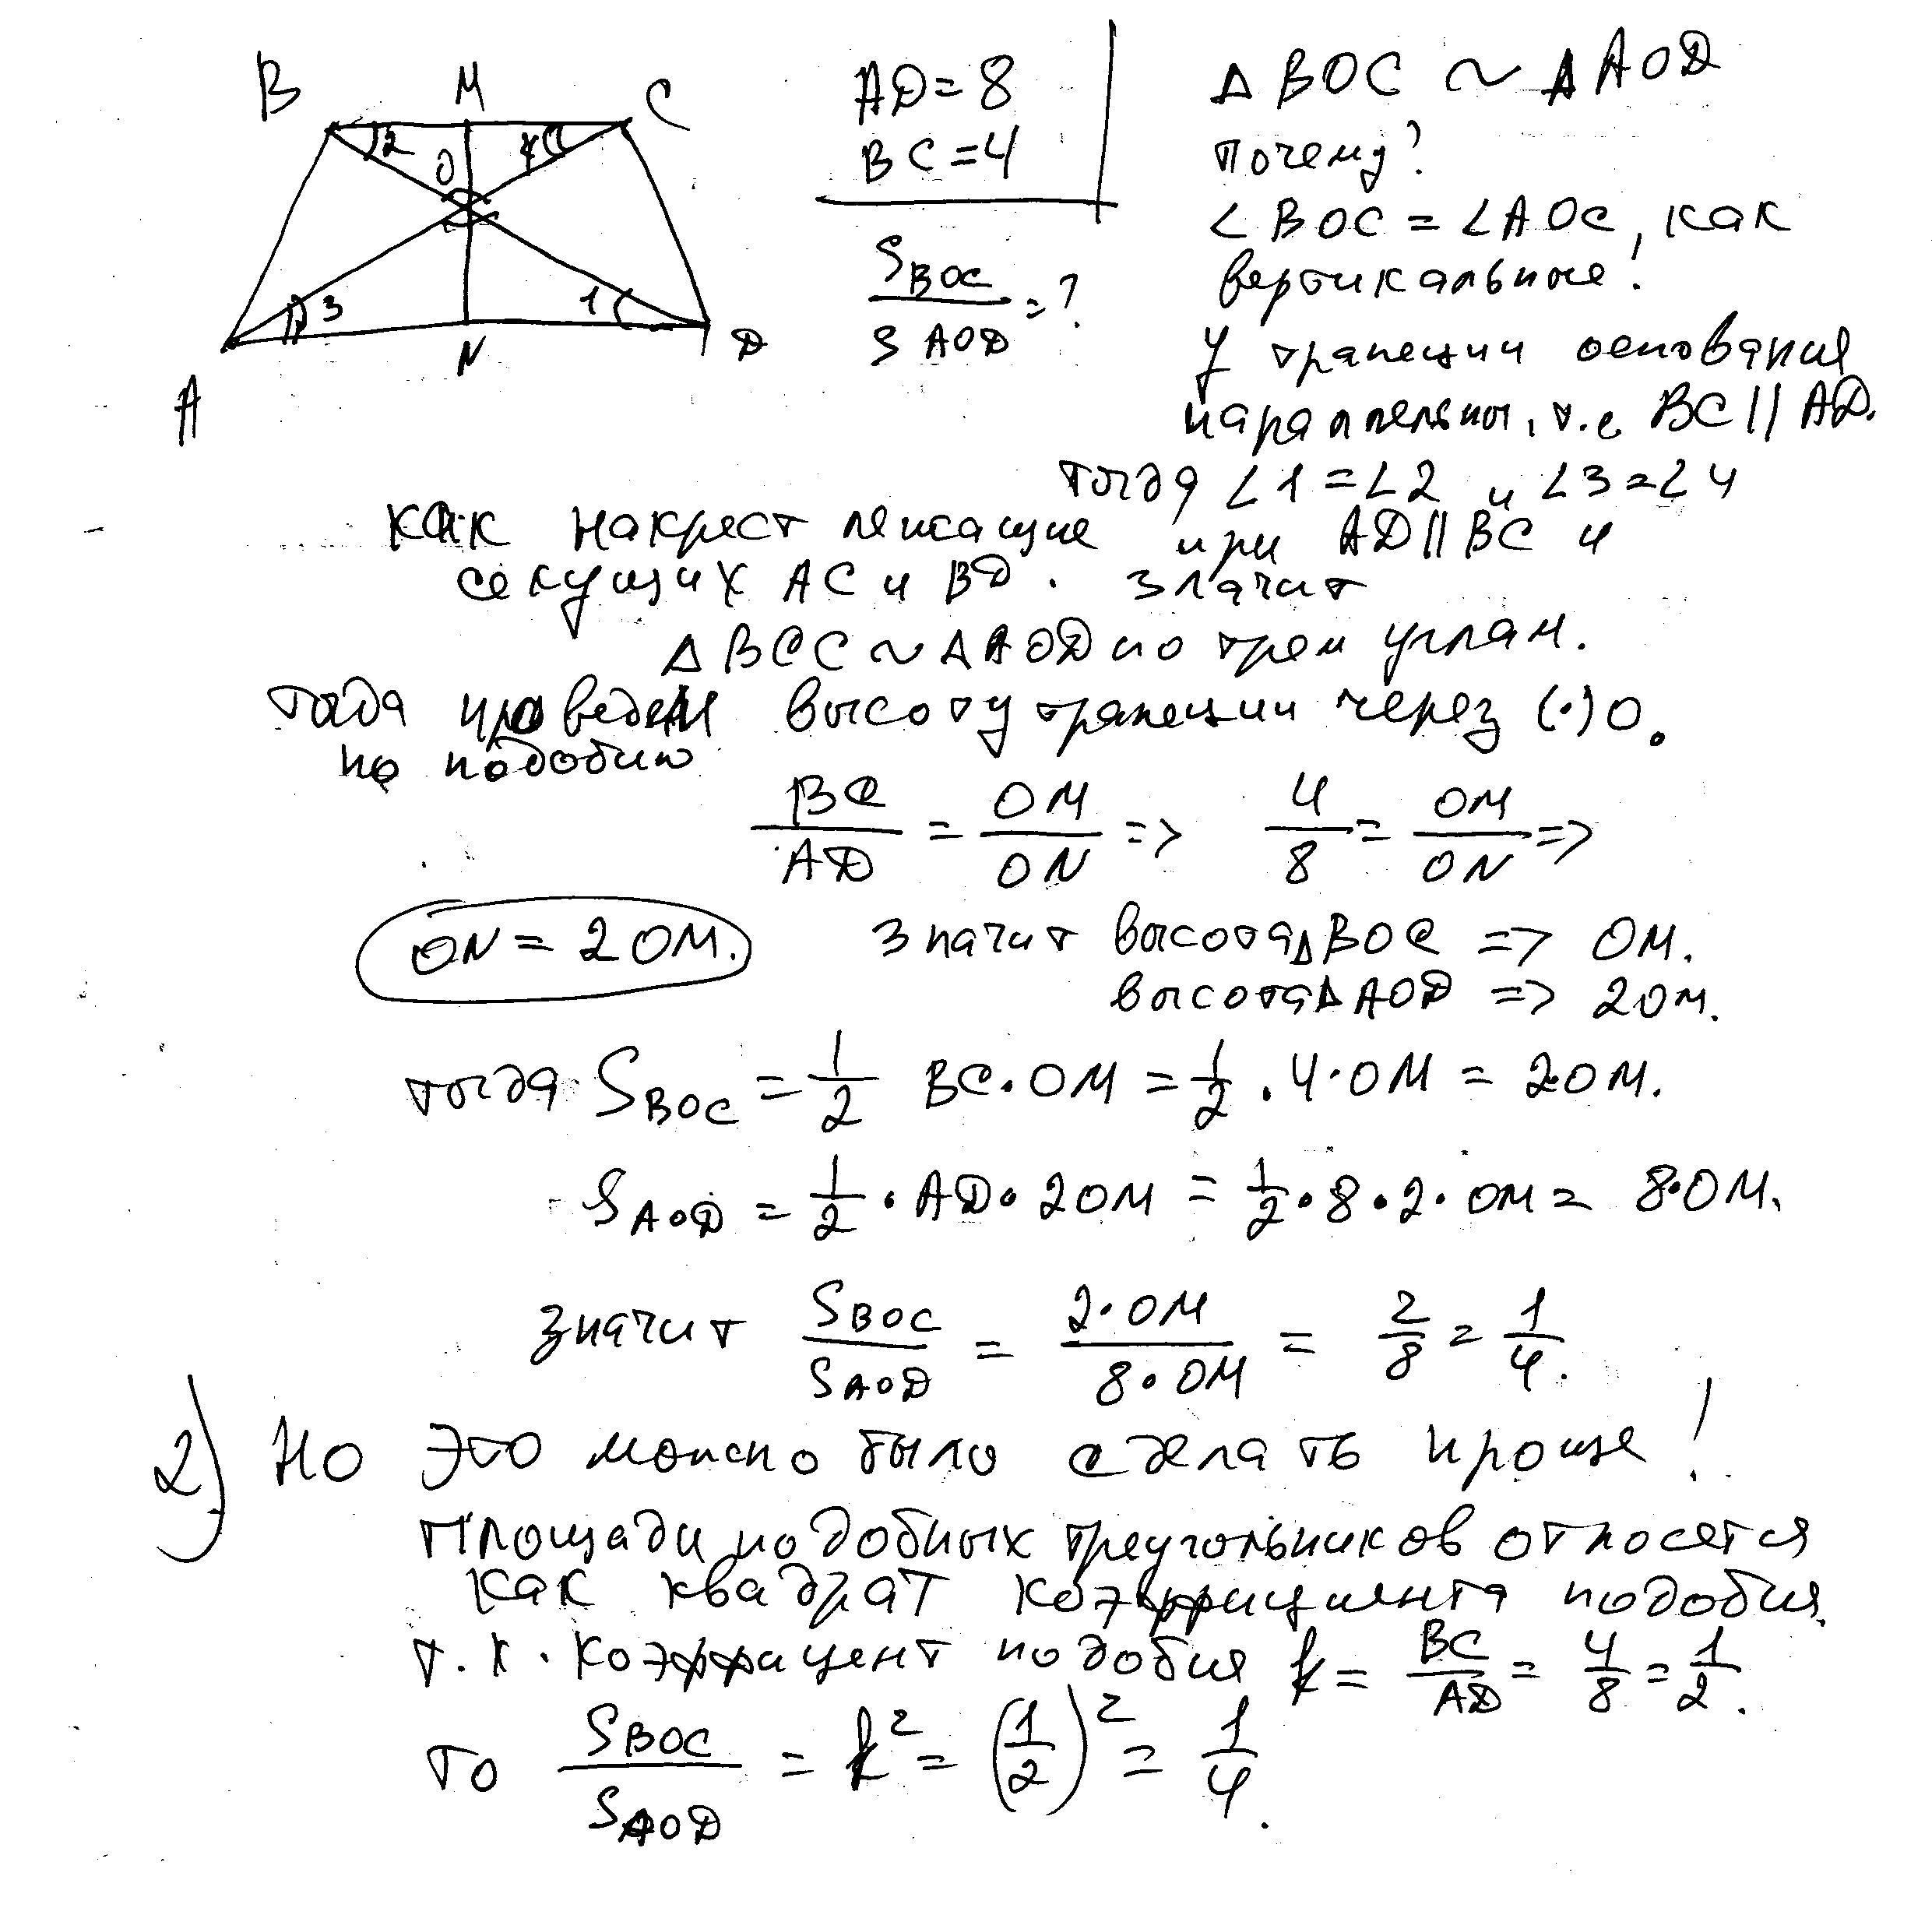 B M C
2 O 4
3 1
A N D
AD = 8
BC = 4
S BOC / S AOD = ?
Δ BOC ~ Δ AOD
почему?
∠ BOC = ∠ AOC, как
вертикальные!
У трапеции основания
параллельны, т.е BC || AD.
тогда ∠1 = ∠2 и ∠3 = ∠4
как накрест лежащие при AD || BC и
секущих AC и BD. Значит
Δ BOC ~ Δ AOD по трем углам.
тогда проведем высоту трапеции через (·) O.
по подобию
BC / AD = OM / ON => 4 / 8 = OM / ON =>
ON = 2 OM. Значит высота Δ BOC => OM.
высота Δ AOD => 2OM.
тогда S BOC = 1/2 BC · OM = 1/2 · 4 · OM = 2OM.
S AOD = 1/2 · AD · 2OM = 1/2 · 8 · 2 · OM = 8·OM.
значит S BOC / S AOD = 2·OM / 8·OM = 2/8 = 1/4.
2) Но это можно было сделать проще!
Площади подобных треугольников относятся
как квадрат коэффициента подобия.
т.к. коэффицент подобия k = BC / AD = 4/8 = 1/2.
то S BOC / S AOD = k² = (1/2)² = 1/4.